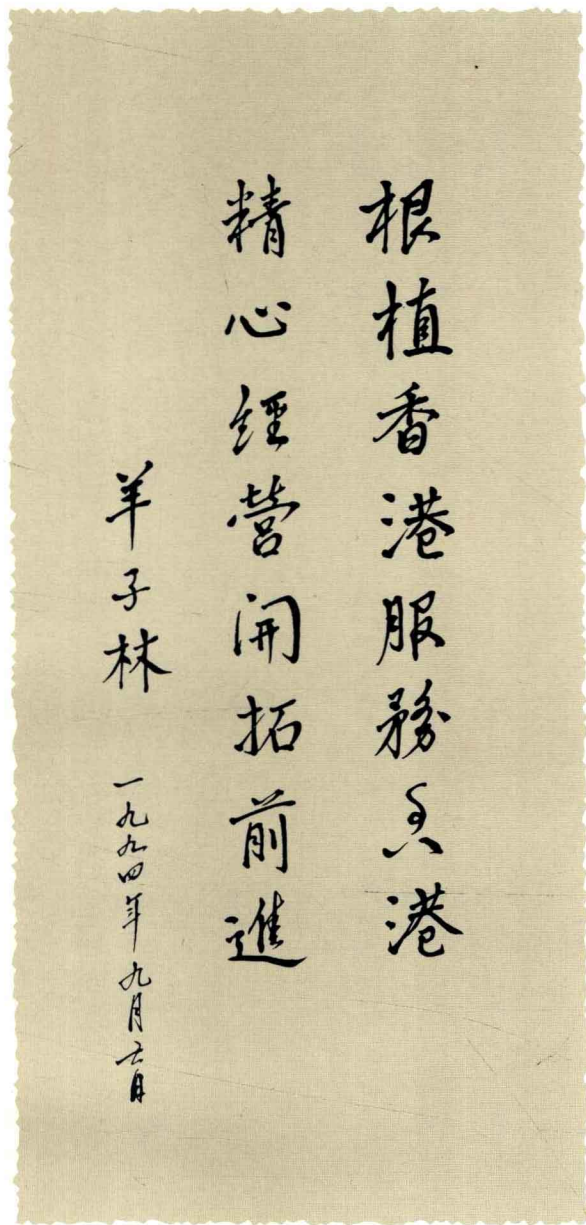 根植香港服務香港
精心經營開拓前進
羊子林 一九九四年九月六日